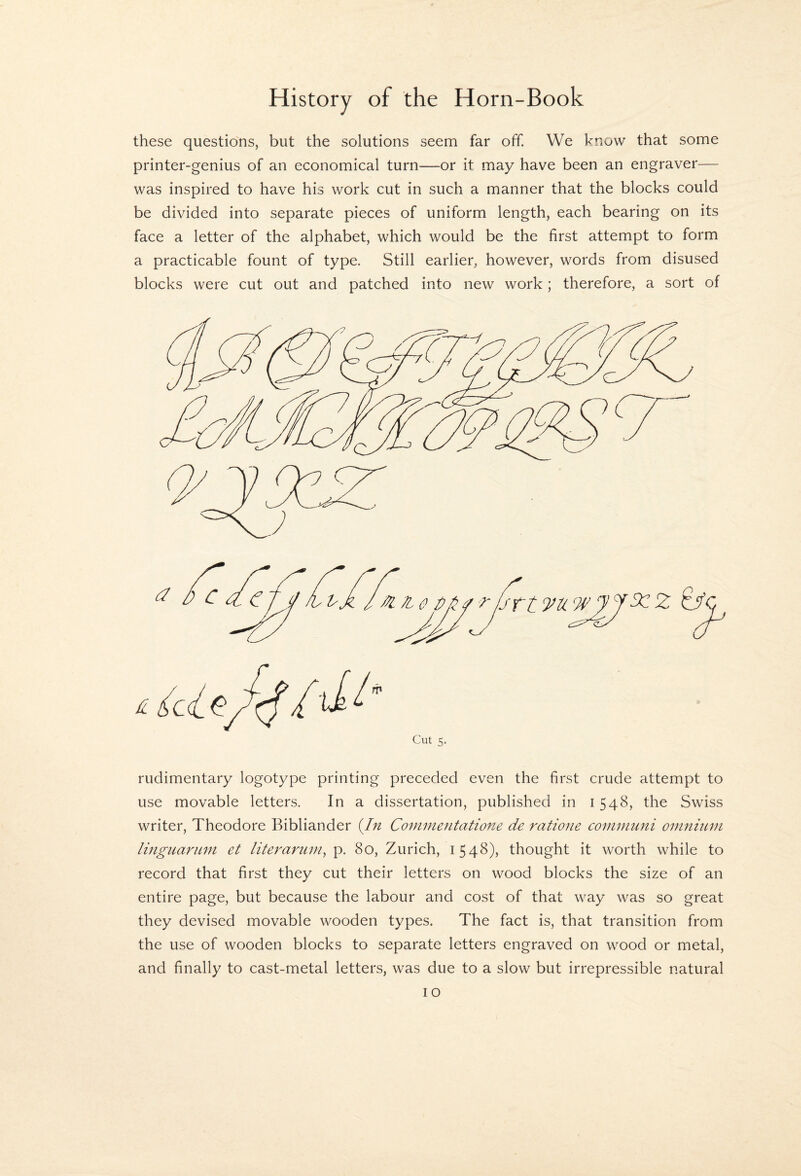 History of the Horn-Book
these questions, but the solutions seem far off. We know that some
printer-genius of an economical turn—or it may have been an engraver—
was inspired to have his work cut in such a manner that the blocks could
be divided into separate pieces of uniform length, each bearing on its
face a letter of the alphabet, which would be the first attempt to form
a practicable fount of type. Still earlier, however, words from disused
blocks were cut out and patched into new work; therefore, a sort of
Cut 5.
rudimentary logotype printing preceded even the first crude attempt to
use movable letters. In a dissertation, published in 1548, the Swiss
writer, Theodore Bibliander (In Commentatione de ratione communi omnium
linguarum et literarum, p. 80, Zurich, 1548), thought it worth while to
record that first they cut their letters on wood blocks the size of an
entire page, but because the labour and cost of that way was so great
they devised movable wooden types. The fact is, that transition from
the use of wooden blocks to separate letters engraved on wood or metal,
and finally to cast-metal letters, was due to a slow but irrepressible natural
10